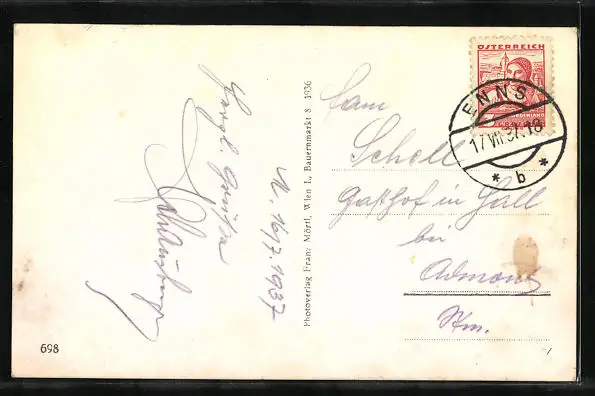 Herzl. Grüße
N. 16/7. 1937
Photoverlag Franz Mörtl, Wien I., Bauernmarkt 8 1936
698
ÖSTERREICH
ENNS
17.VII.37.18
* b *
Fam
Schell
Gasthof in Hall
bei
Admont
Stm.